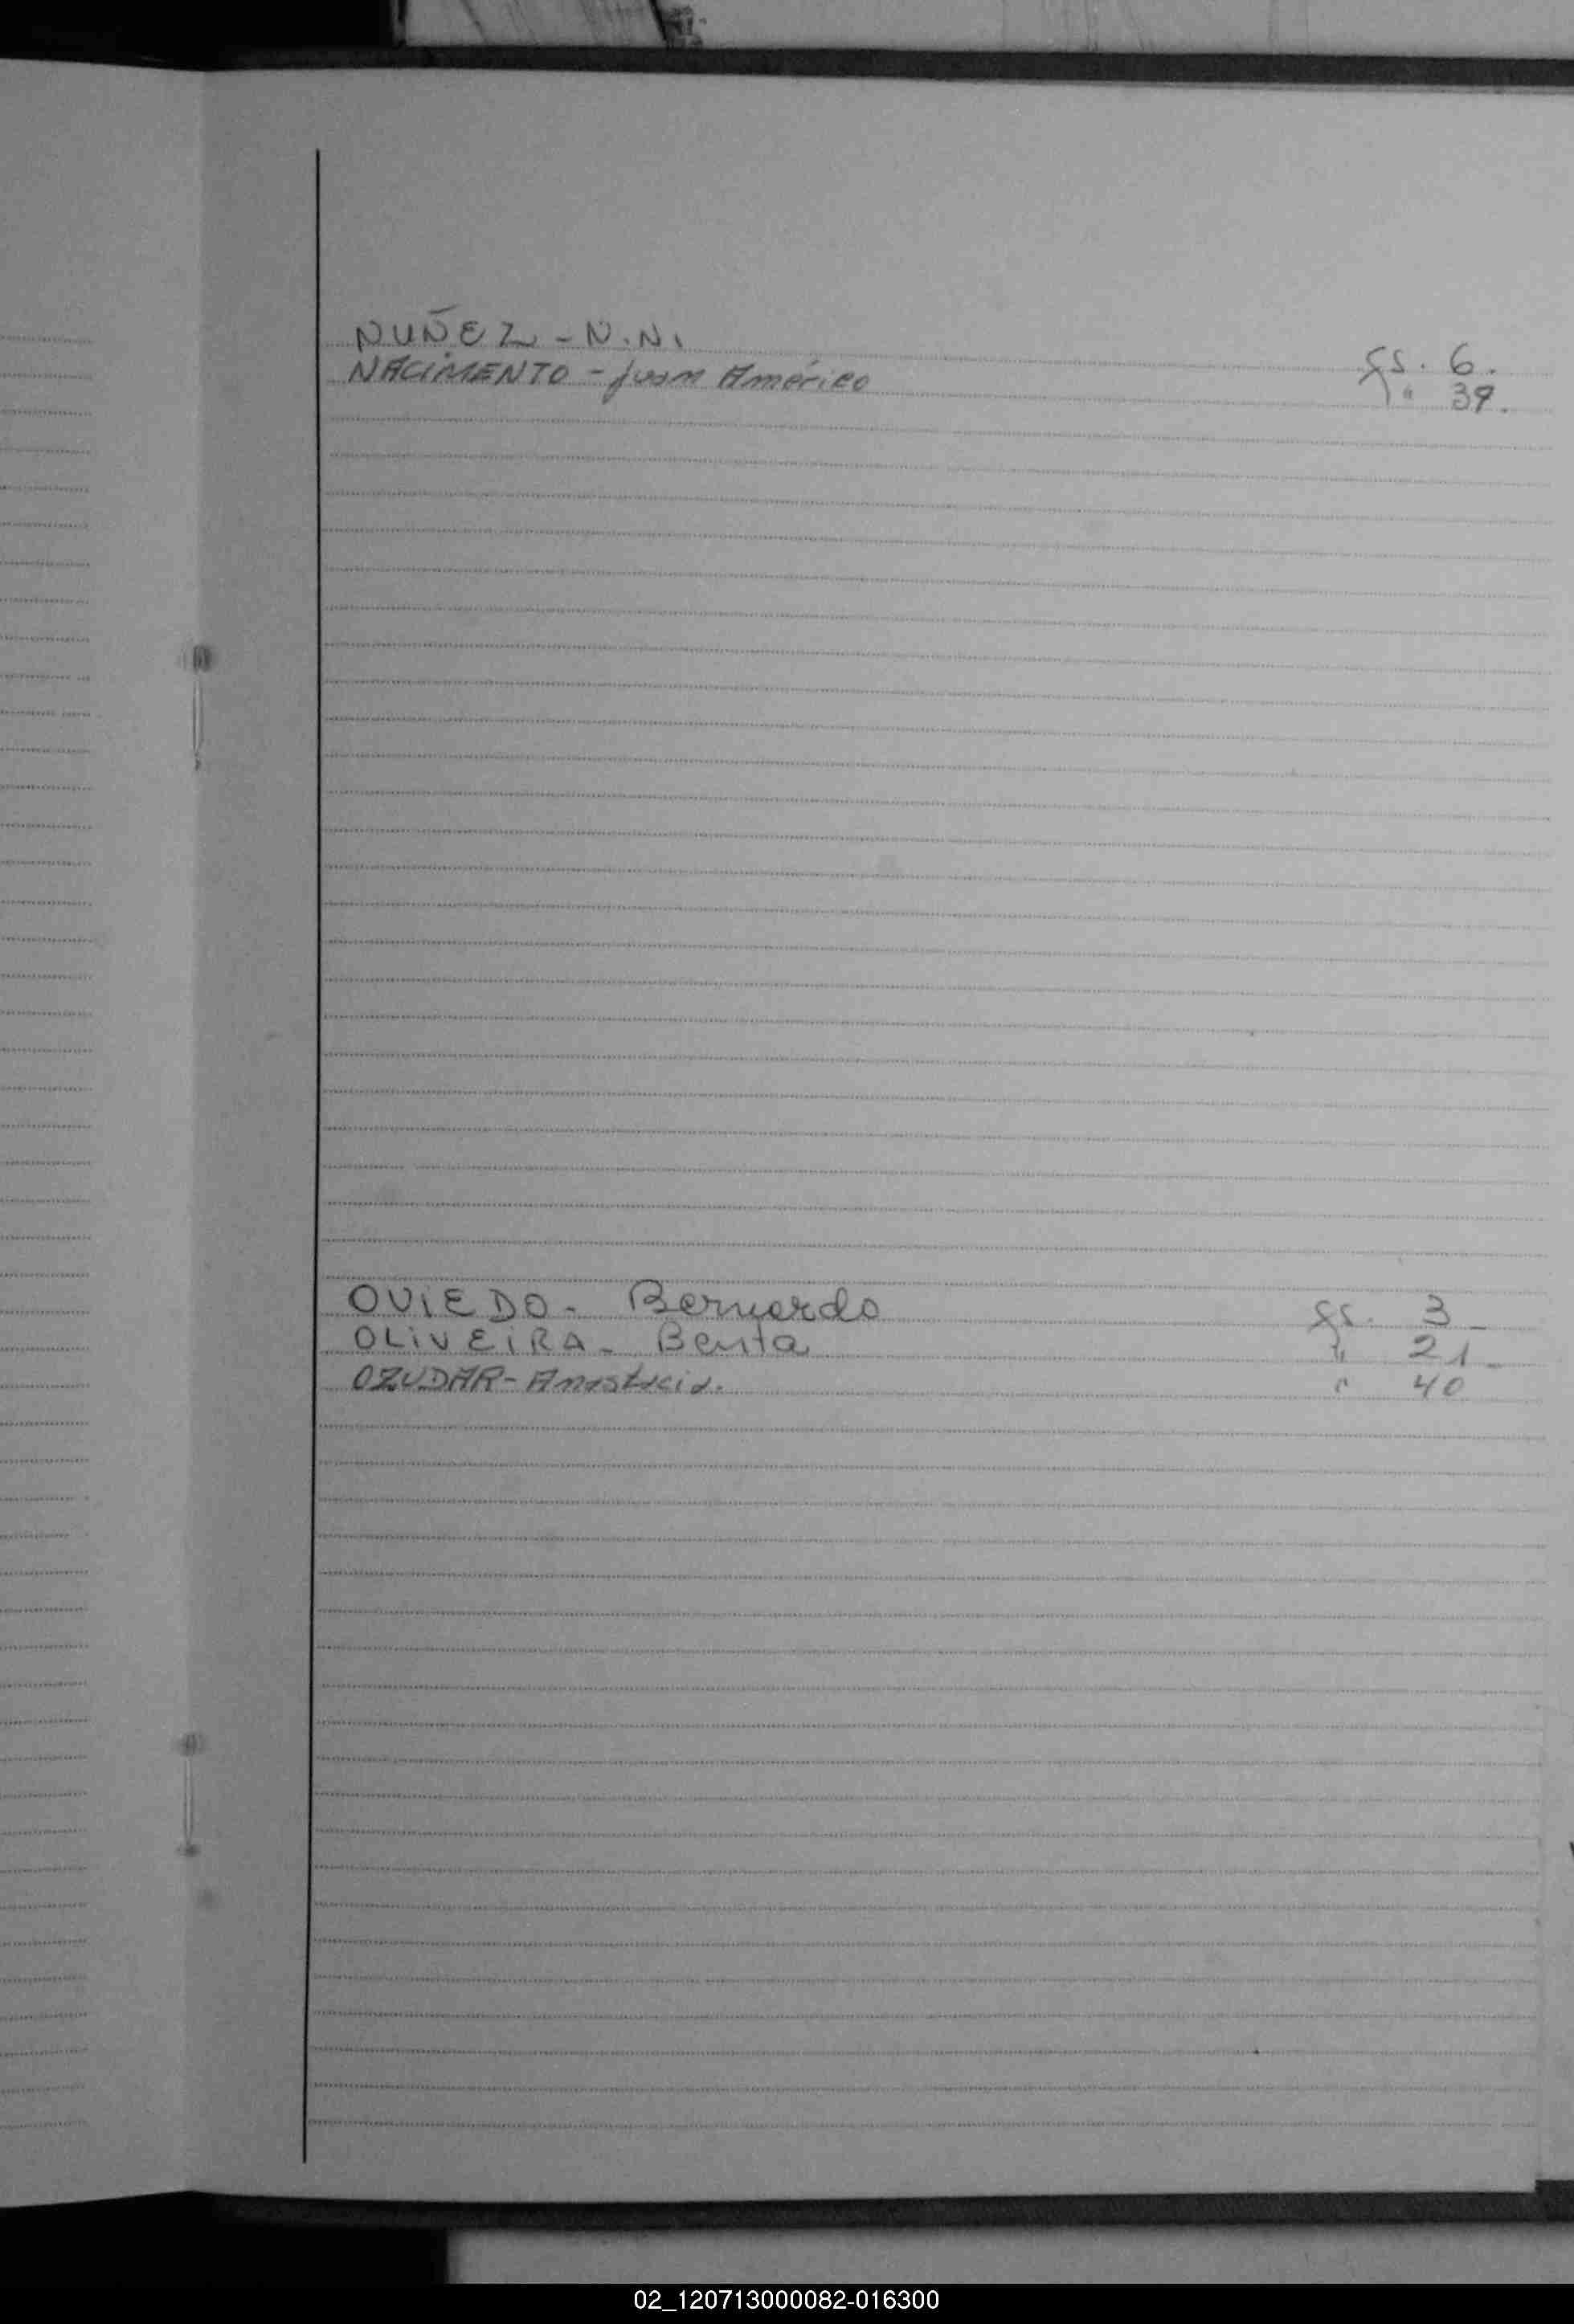 NUÑEZ - N.N. fs. 6.
NACIMENTO - Juan Américo " 39.
OVIEDO - Bernardo fs. 3 -
OLIVEIRA - Benta " 21 -
OZUDAR - Anastacia. " 40
02_120713000082-016300